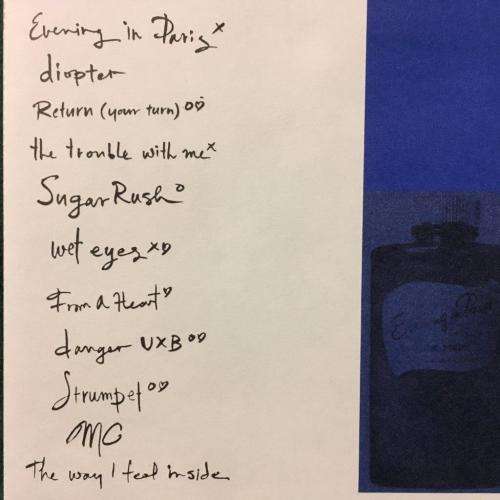 Evening in Paris x
diopter
Return (your turn) o♡
the trouble with me x
Sugar Rush o
wet eyes x♡
From a Heart ♡
danger UXB o♡
Strumpet o♡
MC
The way I feel inside
Evening in Paris